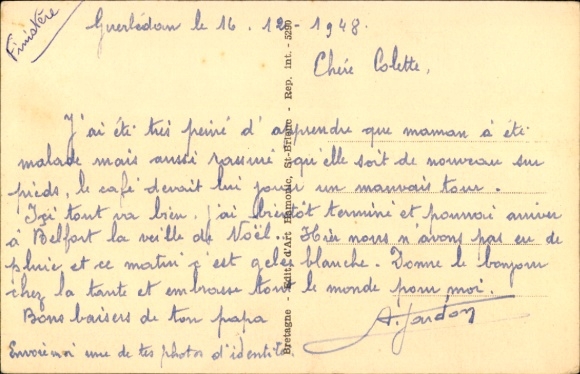 Finistère
Guerlédan le 16.12-1948.
Chère Colette,
J'ai été très peiné d'apprendre que maman à été
malade mais aussi rassuré qu'elle soit de nouveau sur
pieds, le café devait lui jouer un mauvais tour.
Ici tout va bien, j'ai bientôt terminé et pourrai arriver
à Belfort la veille de Noël. Hier nous n'avons pas eu de
pluie et ce matin c'est gelée blanche. Donne le bonjour
chez la tante et embrasse tout le monde pour moi.
Bons baisers de ton papa
A. Jardon
Envoie moi une de tes photos d'identité
Bretagne - Édit. d'Art Hamonic, St-Brieuc - Rep. int. - 5290